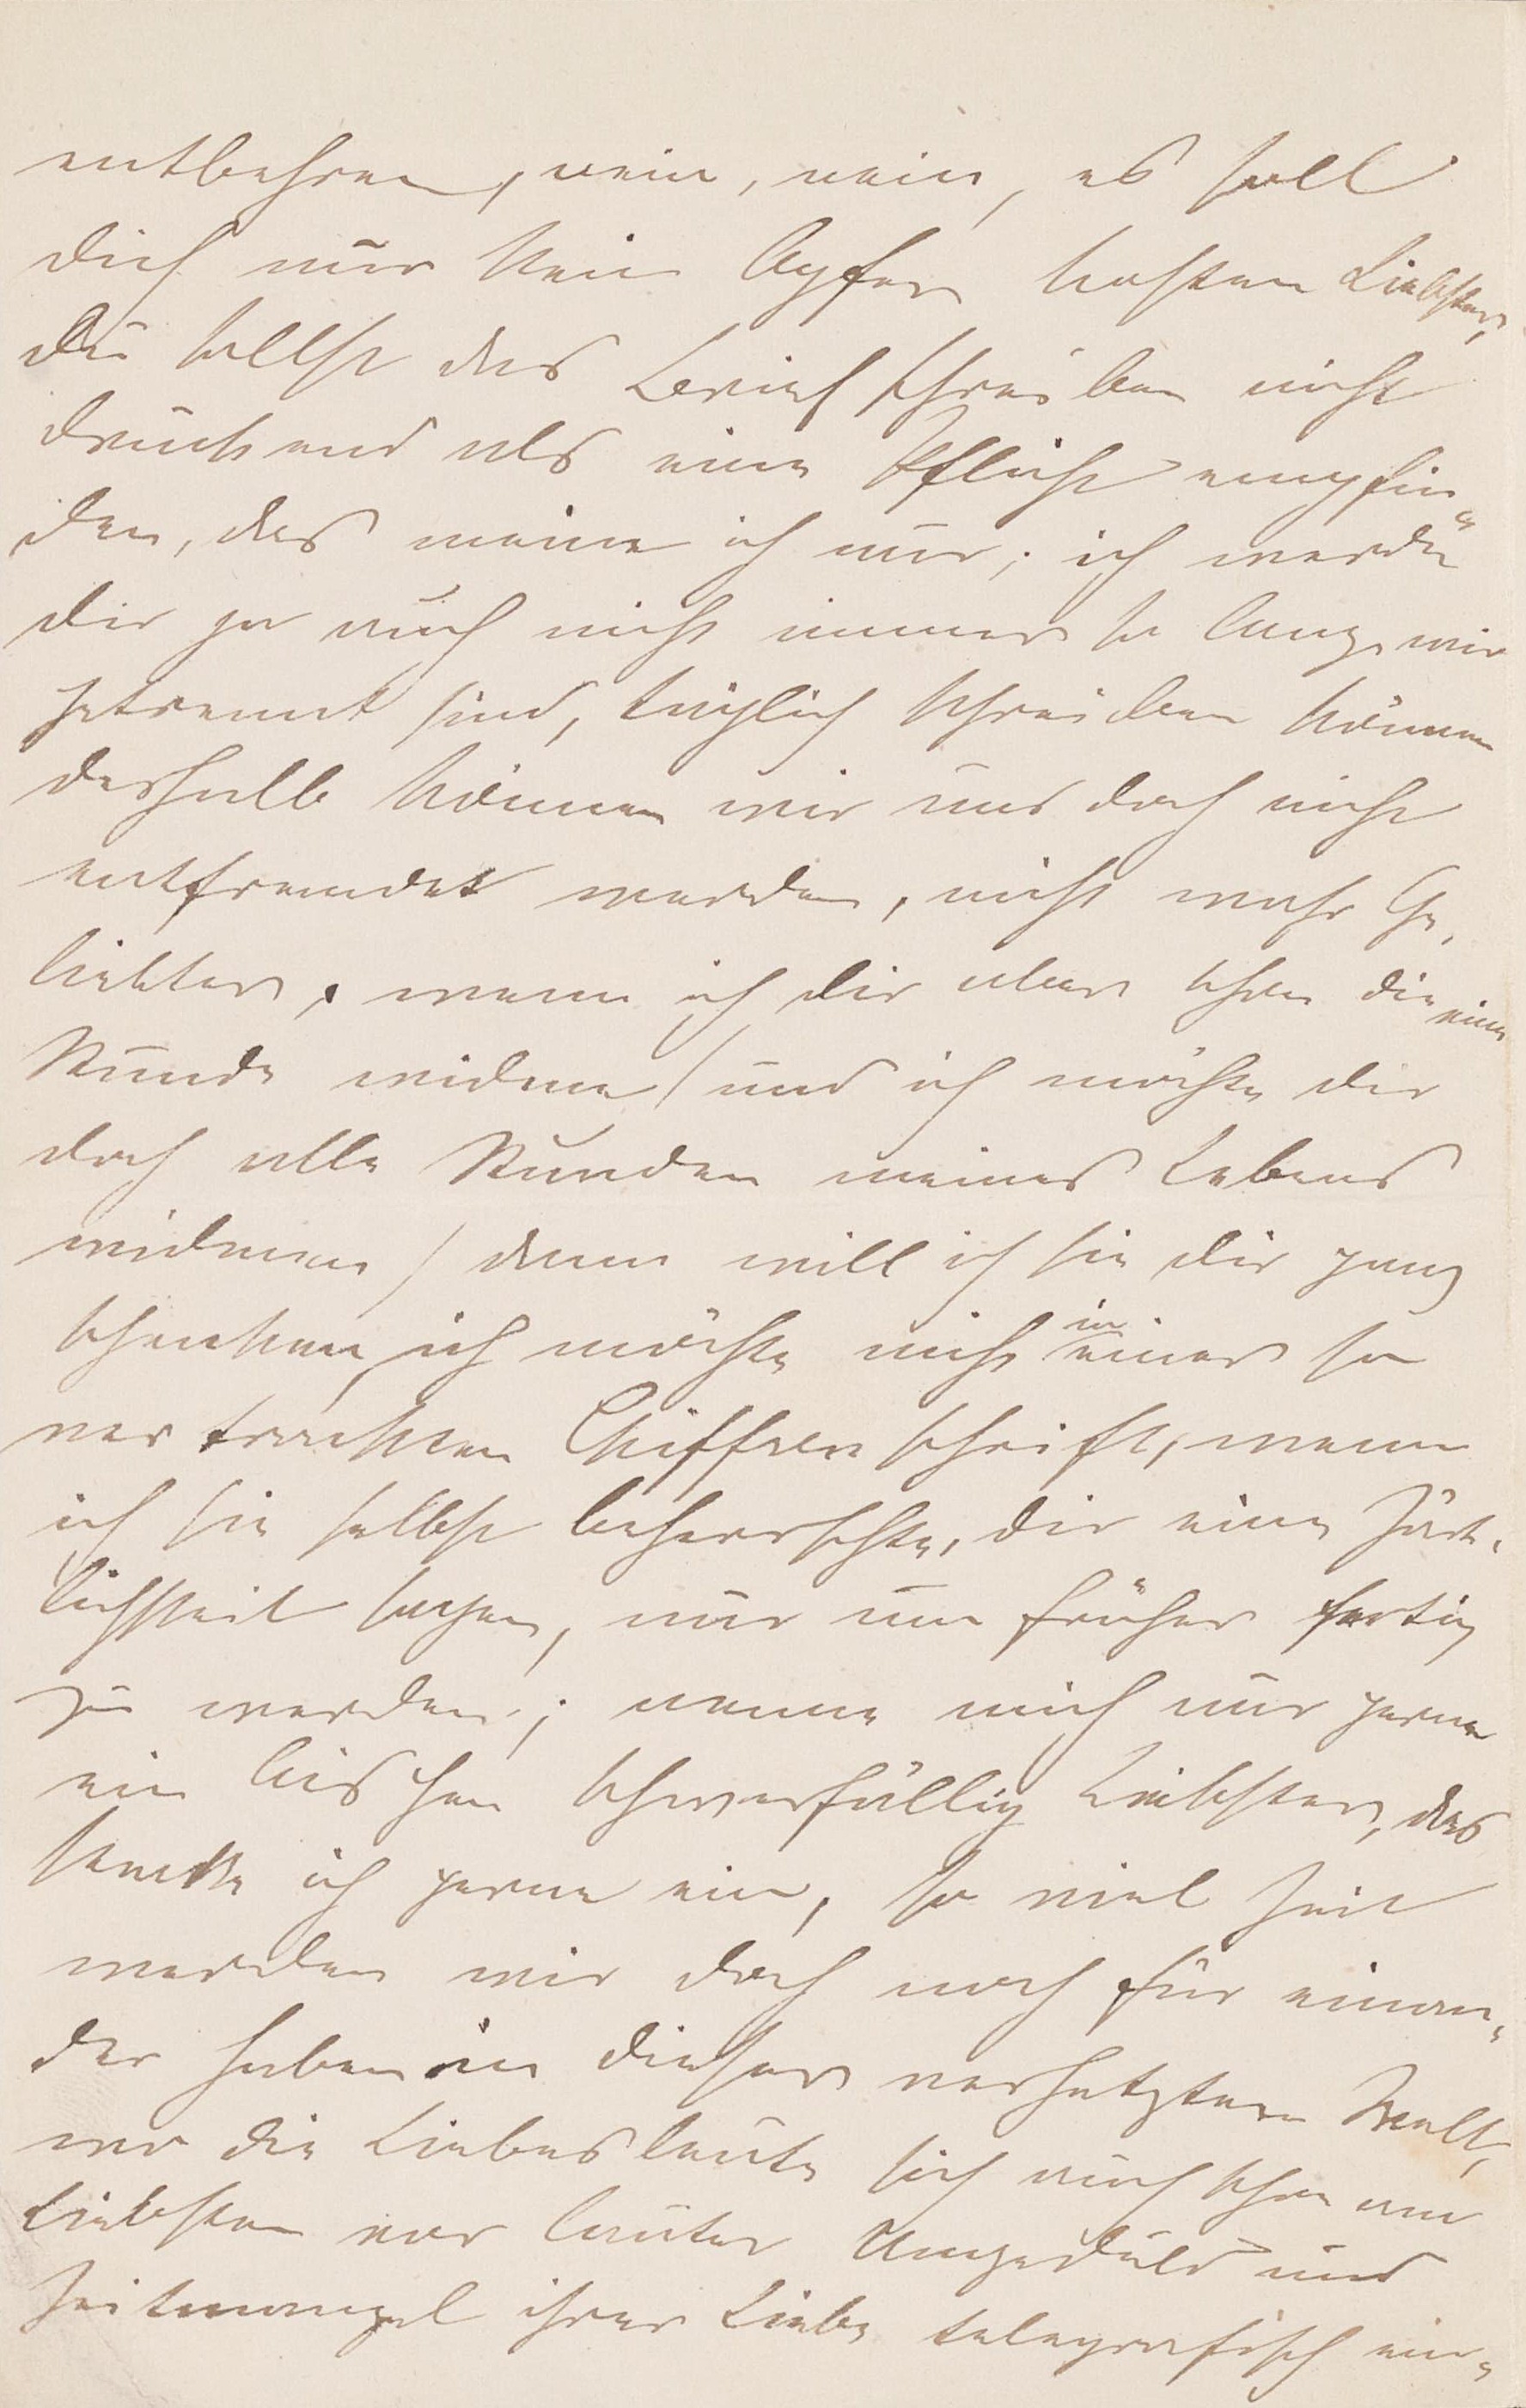 entbehren, nein, nein, es soll
dich nur kein Opfer kosten Liebster,
Du sollst das Briefschreiben nicht
drückend als eine Pflicht empfin-
den, das meine ich nur; ich werde
dir ja auch nicht immer so lang wir
getrennt sind, täglich schreiben können
deshalb können wir uns doch nicht
entfremdet werden, nicht wahr Ge-
liebter, wenn ich dir aber schon die eine
Stunde widme / und ich möchte dir
doch alle Stunden meines Lebens
widmen / dann will ich sie dir ganz
schenken, ich möchte nicht in einer so
vertrackten Chiffrenschrift, wenn
ich sie selbst beherrschte, dir eine Zärt-
lichkeit sagen, nur um früher fertig
zu werden; nenne mich nur gerne
ein bischen schwerfällig Liebster, das
stecke ich gerne ein, so viel Zeit
werden wir doch noch für einan-
der haben in dieser verhetzten Welt,
wo die Liebesleute sich auch schon am
Liebsten vor lauter Ungeduld und
Zeitmangel ihrer Liebe telegrafisch ein-